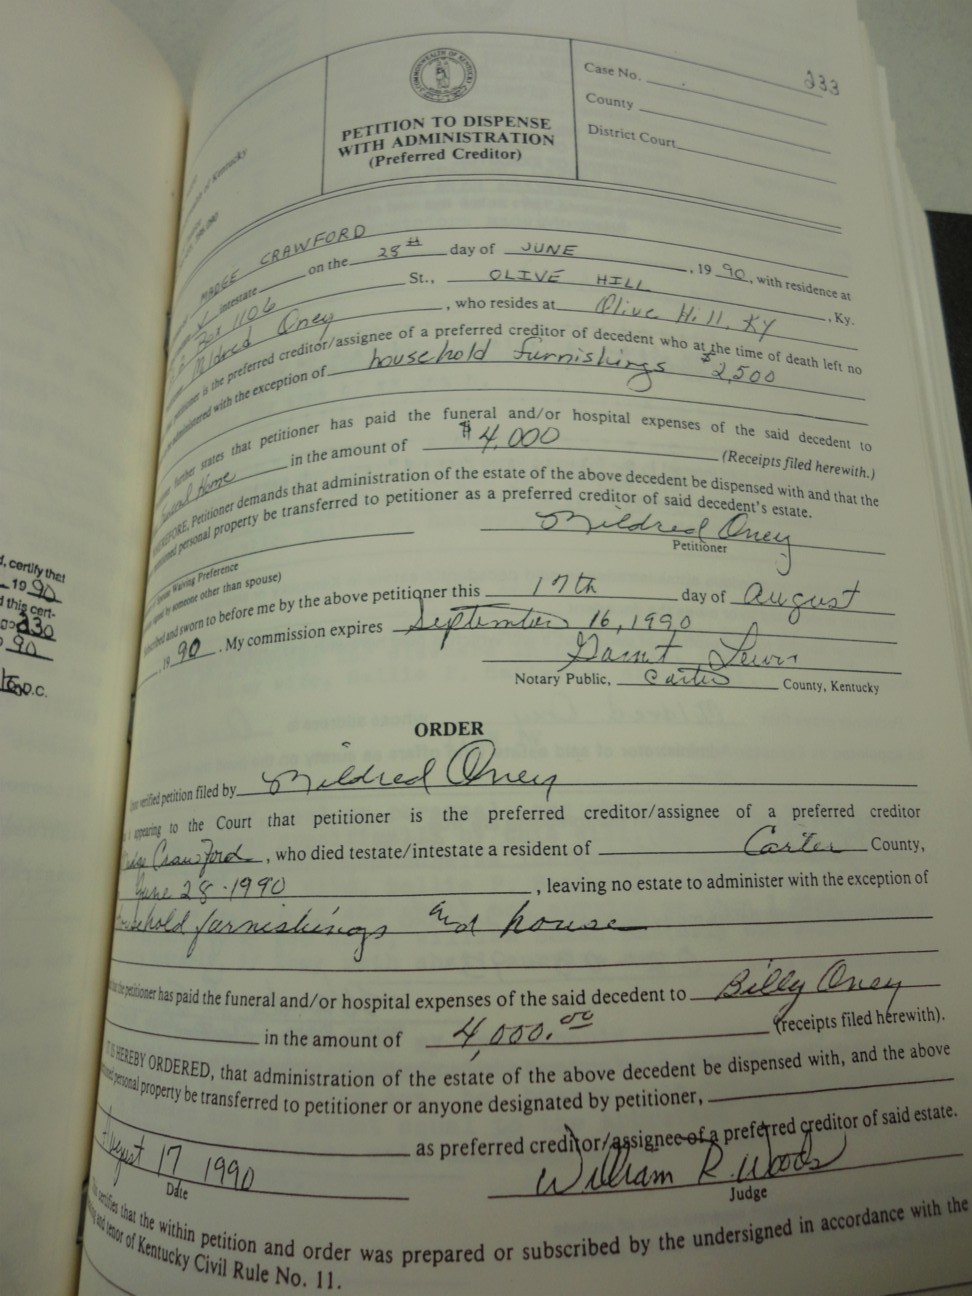 233
Case No.
County
District Court
PETITION TO DISPENSE
WITH ADMINISTRATION
(Preferred Creditor)
of Kentucky
MADGE CRAWFORD
intestate on the 28th day of JUNE, 1990, with residence at
Box 1106 St., OLIVE HILL, Ky.
Mildred Oney, who resides at Olive Hill, KY
petitioner is the preferred creditor/assignee of a preferred creditor of decedent who at the time of death left no
administered with the exception of household furnishings $2,500
further states that petitioner has paid the funeral and/or hospital expenses of the said decedent to
Funeral Home in the amount of $4,000 (Receipts filed herewith.)
WHEREFORE, Petitioner demands that administration of the estate of the above decedent be dispensed with and that the
personal property be transferred to petitioner as a preferred creditor of said decedent's estate.
Mildred Oney
Petitioner
Waiving Preference
by someone other than spouse)
and sworn to before me by the above petitioner this 17th day of August
, 1990. My commission expires September 16, 1990
Garnet Lewis
Notary Public, Carter County, Kentucky
ORDER
verified petition filed by Mildred Oney
appearing to the Court that petitioner is the preferred creditor/assignee of a preferred creditor
Crawford, who died testate/intestate a resident of Carter County,
June 28-1990, leaving no estate to administer with the exception of
household furnishings and house
the petitioner has paid the funeral and/or hospital expenses of the said decedent to Billy Oney
in the amount of 4,000.00 (receipts filed herewith).
IT IS HEREBY ORDERED, that administration of the estate of the above decedent be dispensed with, and the above
personal property be transferred to petitioner or anyone designated by petitioner,
as preferred creditor/assignee of a preferred creditor of said estate.
August 17 1990
Date
William R. Woods
Judge
certifies that the within petition and order was prepared or subscribed by the undersigned in accordance with the
and tenor of Kentucky Civil Rule No. 11.
, certify that
1990
this cert-
230
90
D.C.